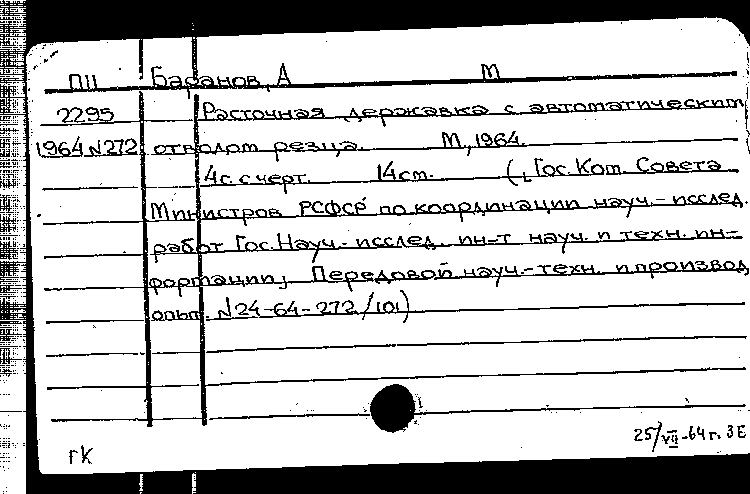 ПII Баранов, А М
2295 Расточная державка с автоматическим
1964 N272 отводом резца. М, 1964.
4с. с черт. 14см. ( Гос. Ком. Совета
Министров РСФСР по координации науч.-исслед.
работ Гос. Науч.-исслед. ин-т науч. и техн. ин-
формации; Передовой науч.-техн. и производ
опыт. N24-64-272/101)
25/VII-64г. ЗЕ
гК